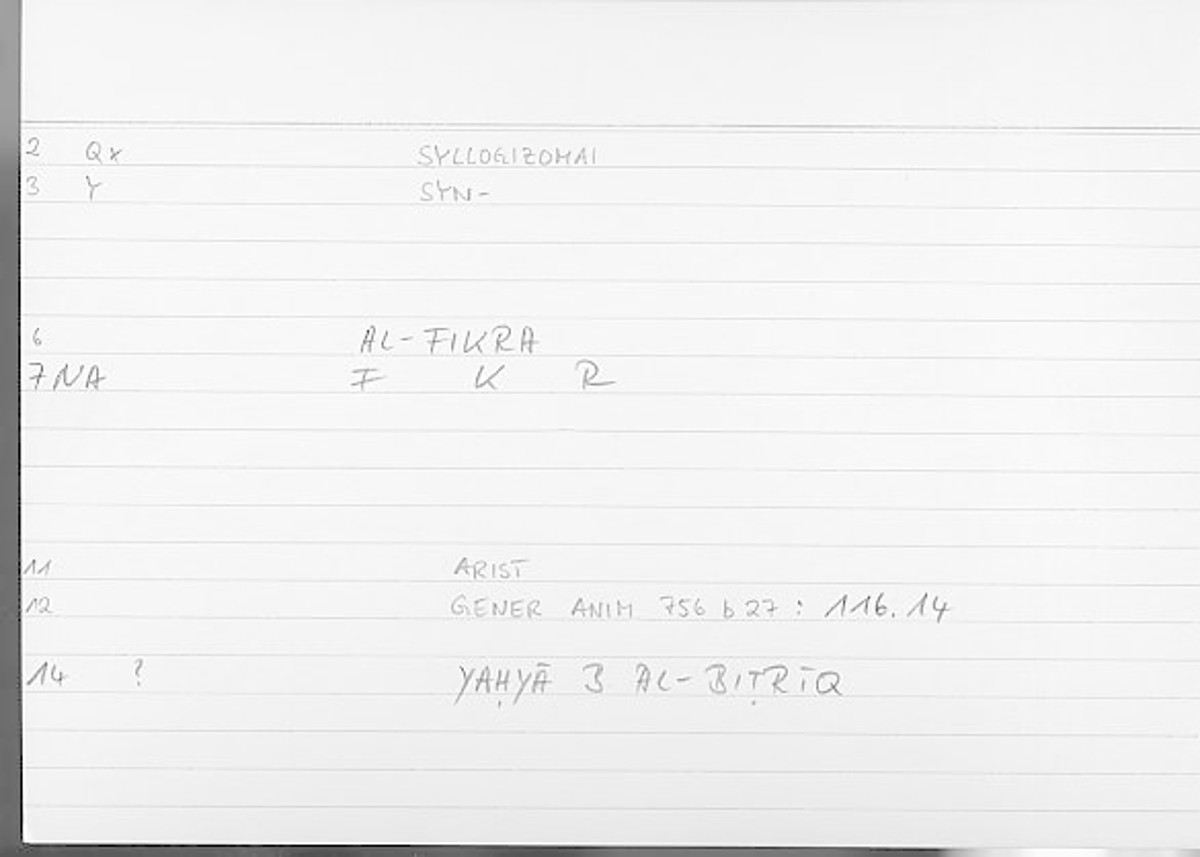 2 Qx SYLLOGIZOMAI
3 Y SYN-
6 AL-FIKRA
7 NA F K R
11 ARIST
12 GENER ANIM 756 b 27 : 116.14
14 ? YAḤYĀ B AL-BIṬRĪQ